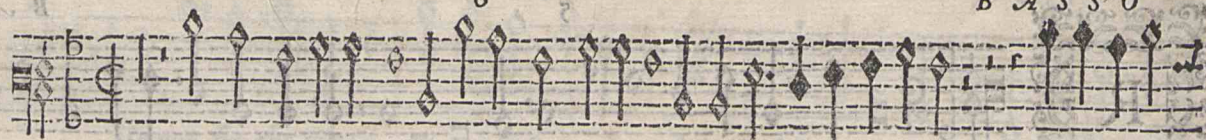 B A S S O